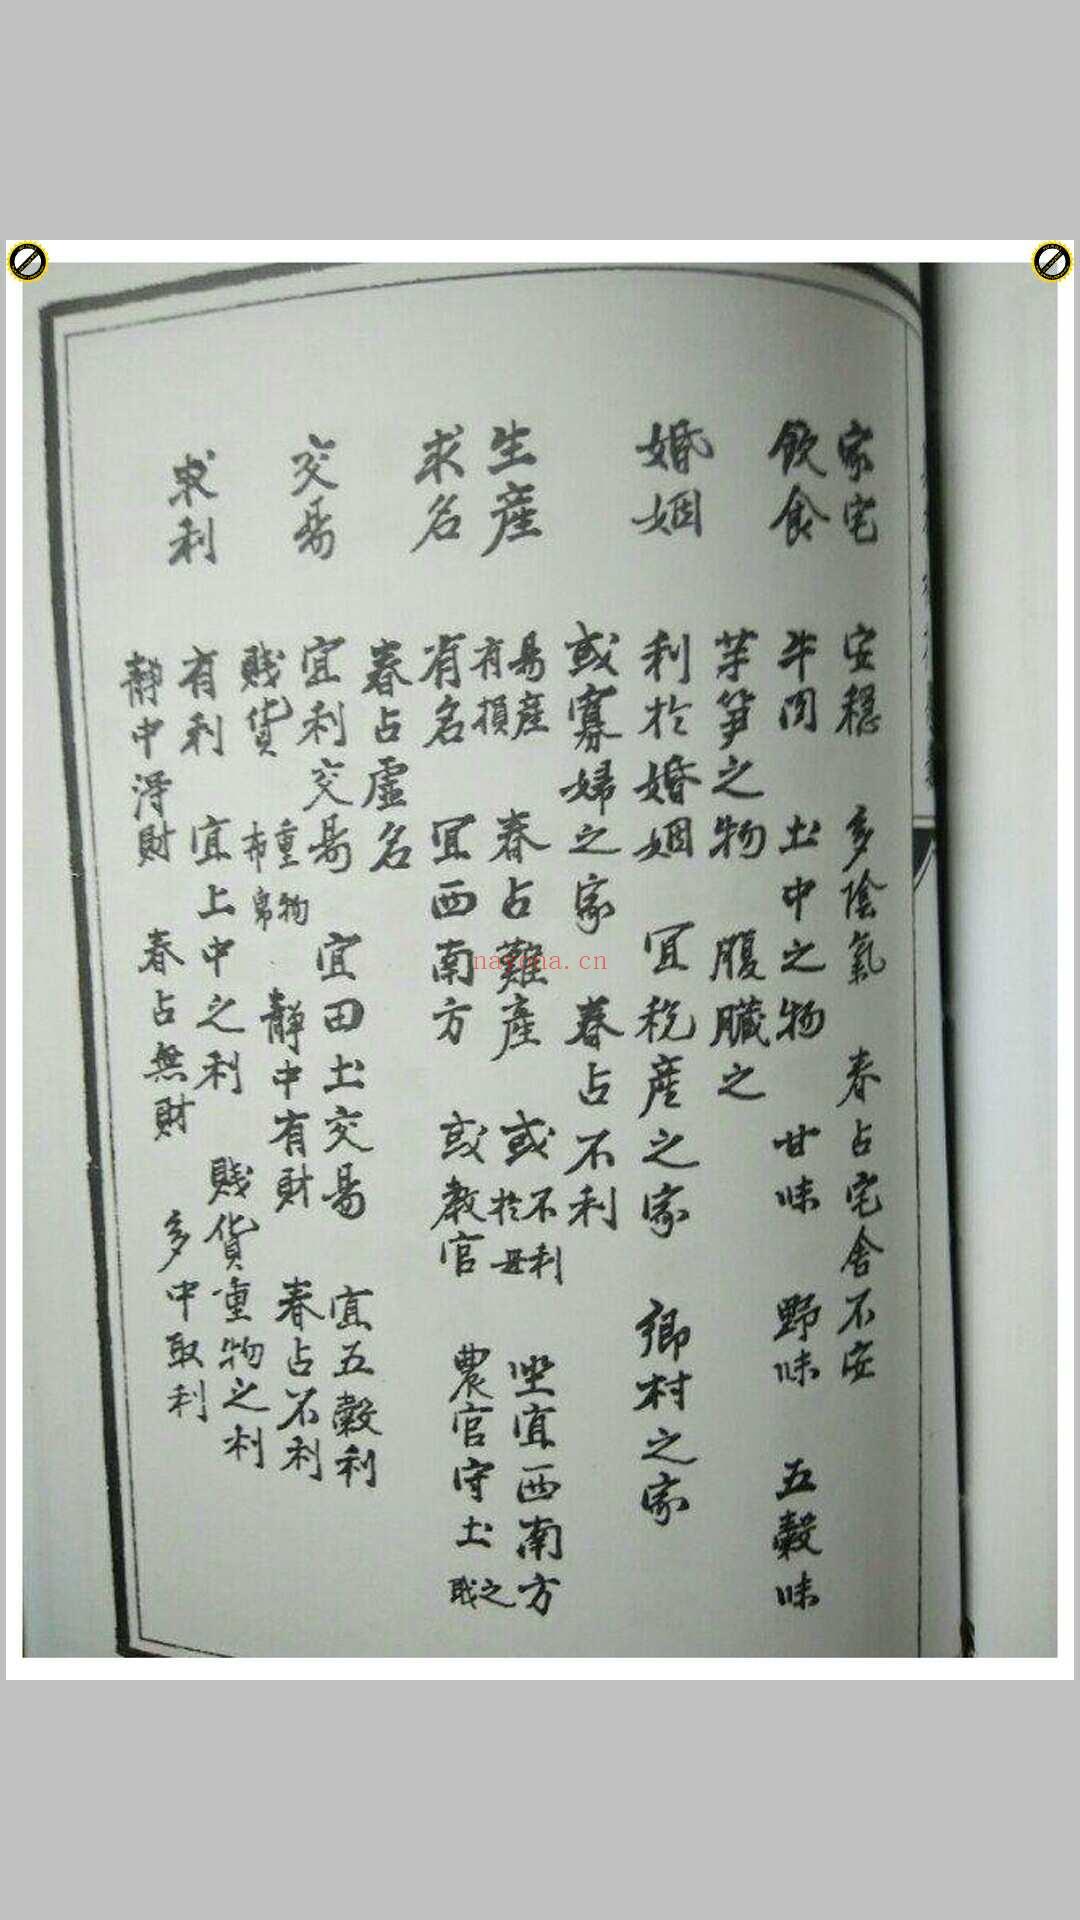 家宅 安穩 多陰氣 春占宅舍不安
飲食 牛肉 土中之物 甘味 野味 五穀味
芋笋之物 腹臟之
婚姻 利於婚姻 宜稅產之家 鄉村之家
或寡婦之家 春占不利
生產 易產有損 春占難產 或不利於母 坐宜西南方
求名 有名 宜西南方 或教官 農官守土之職
春占虛名
交易 宜利交易 宜田土交易 宜五穀利
賤貨 重物布帛 靜中有財 春占不利
求利 有利 宜土中之利 賤貨重物之利
靜中得財 春占無財 多中取利
nayona.cn